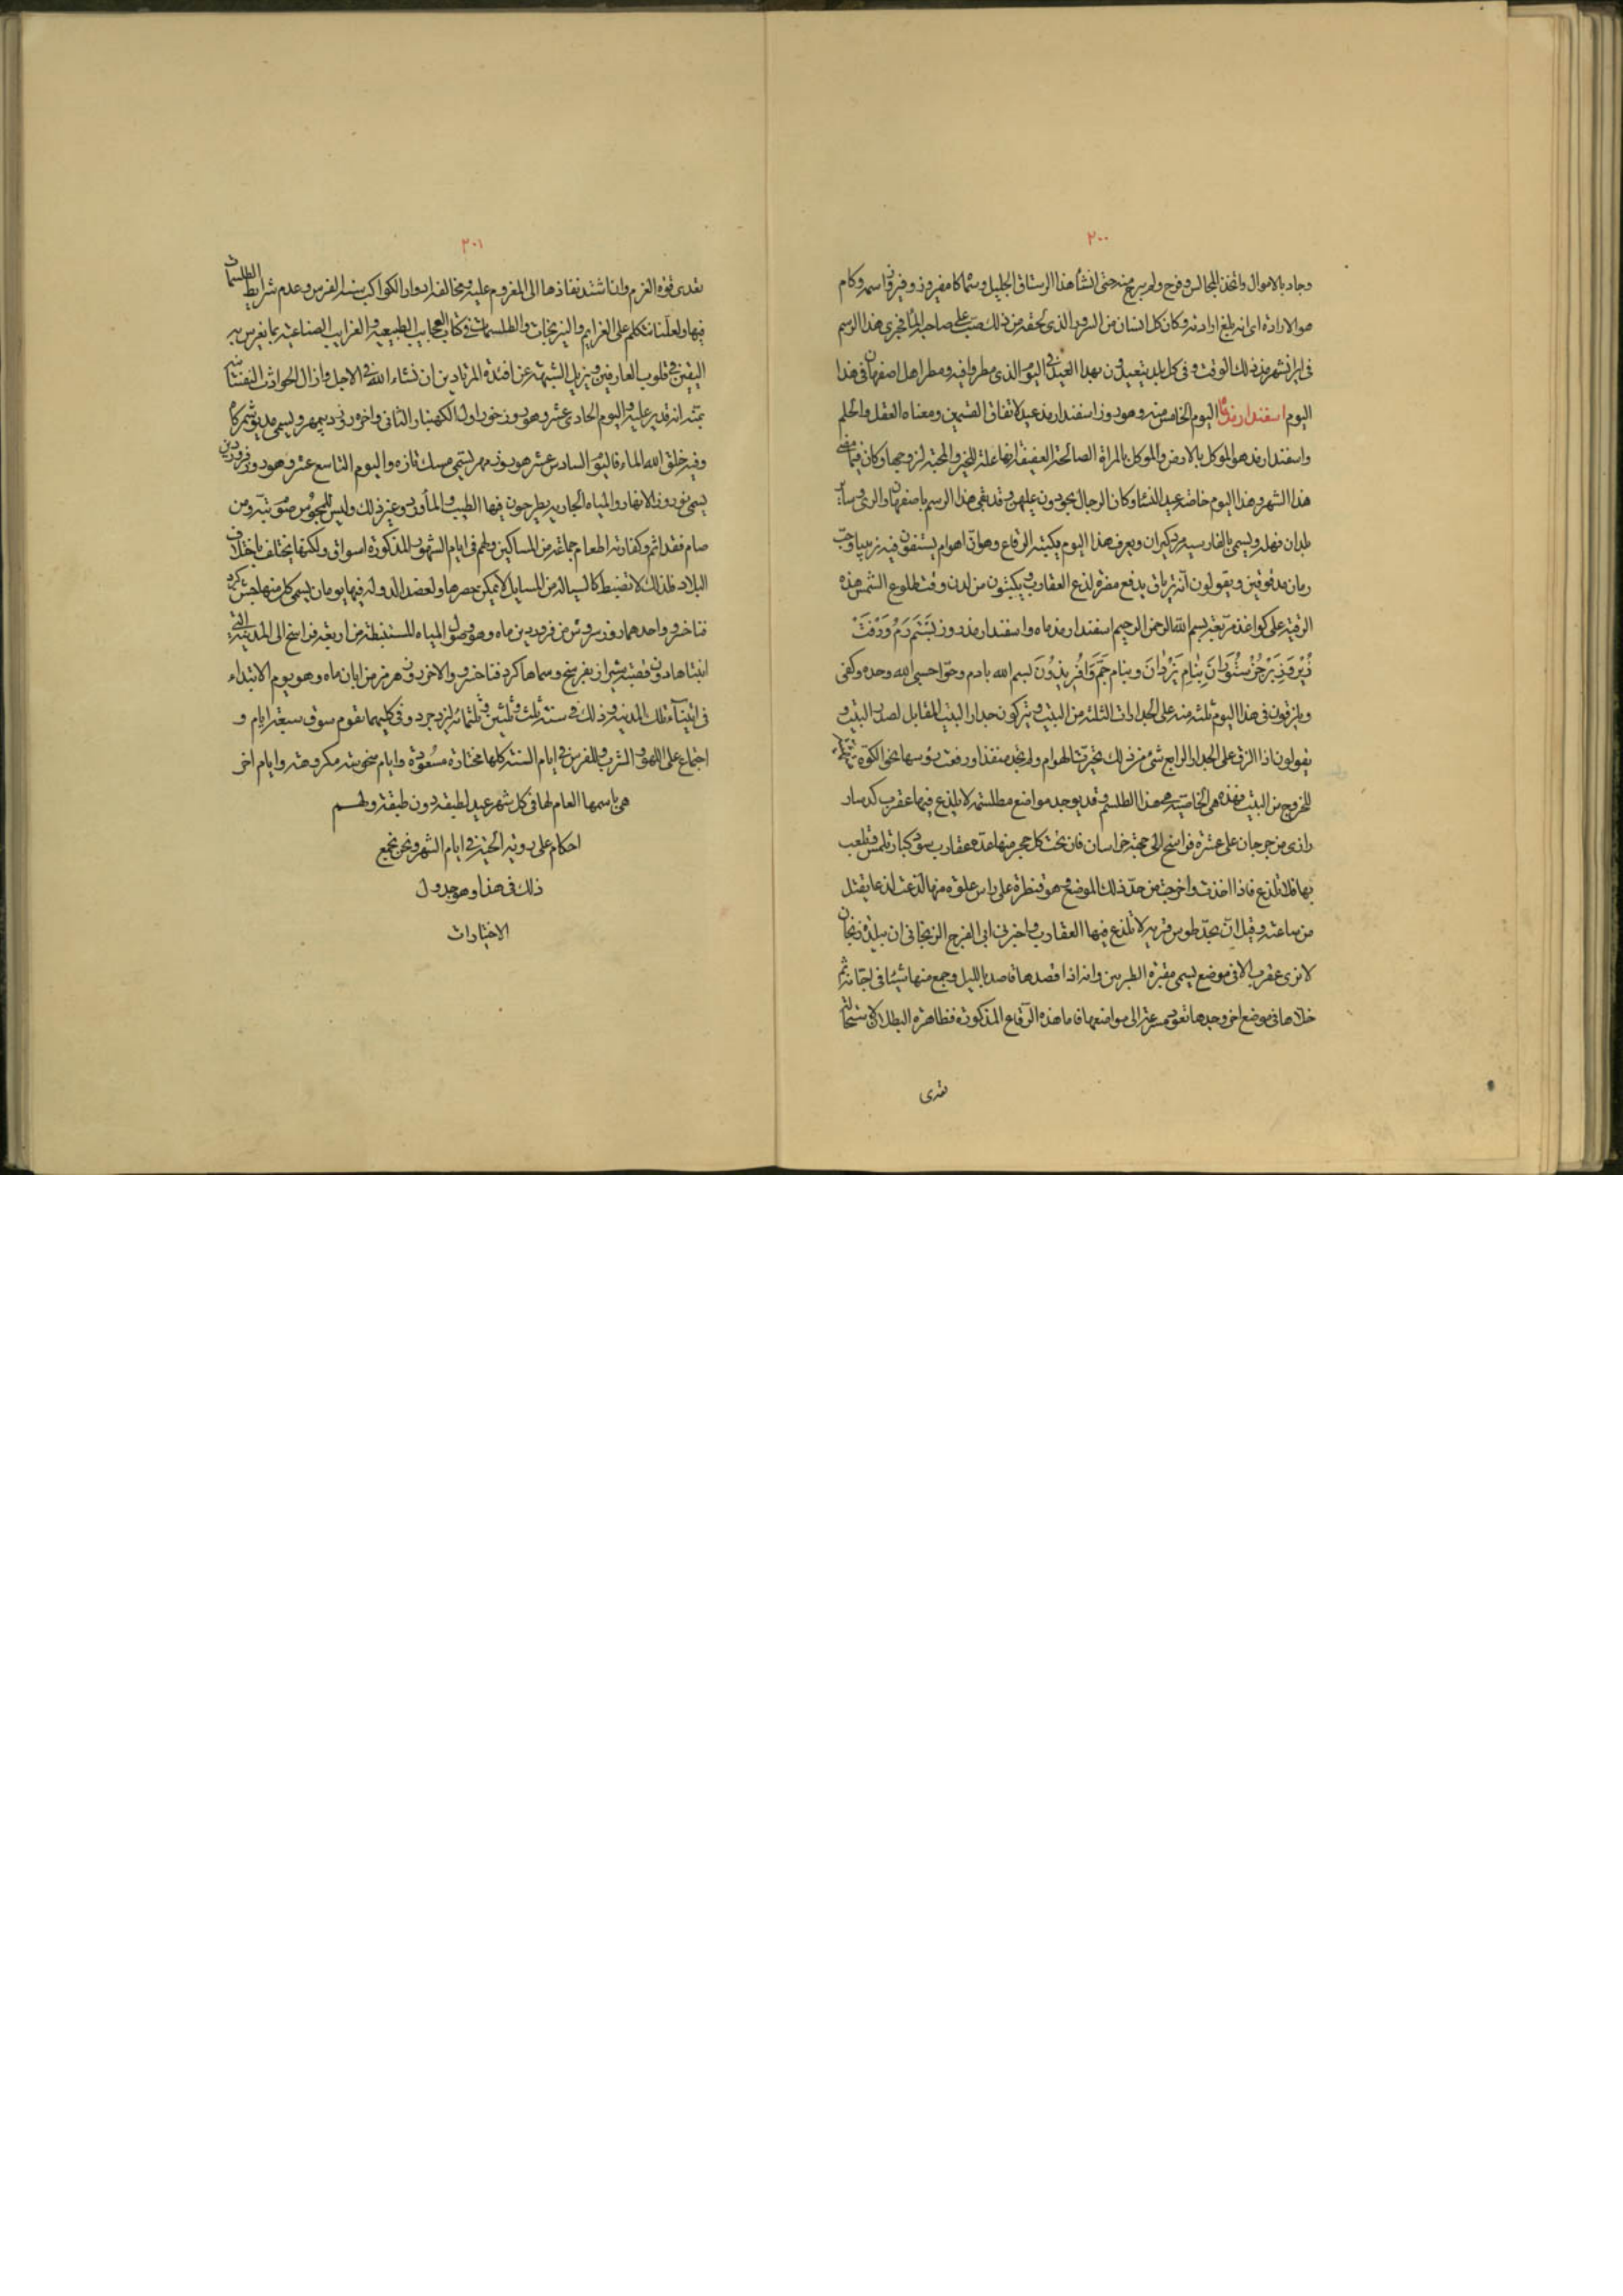 ٢٠٠
وجاد بالاموال واتخذ المجالس وفرح ولم يبرح منه حتى انشأ هذا الرستاق الجليل وسماه كامفيروز وفيروز اسمه وكام
هو الارادة اى انه بلغ ارادته وكان كل انسان من السرور الذى لحقه من ذلك صبّ على صاحبه الماء فجرى هذا الرسم
فى ايرانشهر منذ ذلك الوقت وفى كل بلد يتعيدون بهذا العيد فى اليوم الذى مطروا فيه ومطر اهل اصفهان فى هذا
اليوم اسفندارمذ ماه اليوم الخامس منه وهو روز اسفندارمذ عيد لاتفاق الاسمين ومعناه العقل والحلم
واسفندارمذ هو الموكل بالارض والموكل بالمراة الصالحة العفيفة الفاعلة للخير والمحبة لزوجها وكان فيما مضى
هذا الشهر وهذا اليوم خاصة عيد النساء وكان الرجال يجودون عليهن وقد بقى هذا الرسم باصفهان والرى وساير
بلدان فهله ويسمى بالفارسيه مردكيران ويعرف هذا اليوم بكتبة الرقاع وهو ان العوام يستفون فيه زبيبا وحبّ
رمان مدقوقين ويقولون انه ترياق يدفع مضرة لذع العقارب ويكتبون من لدن وقت طلوع الشمس هذه
الرقية على كواغذ مربعة بسم الله الرحمن الرحيم اسفندارمذ ماه واسفندارمذ روز بَسْتَم رَمُ وَرَفْتَ
زُيْر وَزِبَرْ جُزْ سُتُوَرَانْ بِنَامِ يَزْدَانْ وَبنَام جَمّ وَافْرِيدُونَ بسم الله بادم وحوا حسبى الله وحده وكفى
ويلزقون فى هذا اليوم ثلثه منه على الجدارات الثلثة من البيت ويتركون جدار البيت المقابل لصدر البيت و
يقولون اذا الزق على الجدار الرابع شى من ذلك تحيرت الهوام ولم تجد منفذا ورفعت روسها نحو الكوّة
للخروج من البيت فهذه هى الخاصيّة هذا الطلسم وقد يوجد مواضع مطلسمه لا يلذع فيها عقرب كدسار
رازى من جرجان على عشرة فراسخ الى جهة خراسان فان تحت كل حجر منها عدة عقارب سود كبار تلمس وتلعب
بها فلا تلذع فاذا اخذت واخرجت من حدّ ذلك الموضع وهو قنطرة على راس علوة منها لذعت لذعا يقتل
من ساعته وقيل انّ بحدّ طوس قرية لا تلذع فيها العقارب واخبرنى ابى الفرج الزنجانى ان ببلده زنجان
لا نرى عقرب الا فى موضع يسمى مقبرة الطبريين وانه اذا قصدها قاصد بالليل وجمع منها شيئا فى اجانة ثم
خلاها فى موضع اخر وجدها تعود مسرعة الى مواضعها فاما هذه الرقاع المذكورة فظاهرة البطلان لان
تعدى
٢٠١
تعدى قوة العزم وان اشتد نفاذها الى المعزوم عليه ومخالفه ادوار الكواكب سنة الفرس وعدم شرايط الطلسمات
فيها ولعلّنا نتكلم على العزايم والنيرنجات والطلسمات فى كتاب العجايب الطبيعيه والغرايب الصناعيه بما يغرس به
اليقين فى قلوب العارفين ويزيل الشبهة عن افئدة المرتادين ان نشاء الله فى الاجل وازال الحوادث النفسانية
بمنّه انه قدير عليه واليوم الحادى عشر وهو روز خور اول الكهنبار الثانى واخره روز ديبمهر ويسمى مديوشم كاه
وفيه خلق الله الماء فاليوم السادس عشر هو روز مهر يسمى مسك تازه واليوم التاسع عشر وهو روز فروردين
يسمى نوروز الانهار والمياه الجاريه يطرحون فيها الطيب والمأورد وغير ذلك وليس للمجوس صوم بتّه ومن
صام فقد اثم وكفارته اطعام جماعة من المساكين ولهم فى ايام الشهور المذكورة اسواق ولكنها يختلف باختلاف
البلاد فلذلك لا تضبط كالسياله من المسايل لا يمكن حصرها ولعضد الدوله فيها يومان يسمى كل منها جشن كرد
فناخسرو واحدهما روز سروش من فروردين ماه وهو وصول المياه المستنبطة من اربعة فراسخ الى المدينة التى
ابتناها دون قصبة شيراز بفرسخ وسماها كرد فناخسرو والاخر روز هرمز من ابان ماه وهو يوم الابتداء
فى ابتناء تلك المدينه وذلك فى سنة ثلث وثلثين وثلثمائه ليزدجرد وفى كليهما تقوم سوق سبعة ايام و
اجتماع على اللهو والشرب وللفرس فى ايام السنة كلها مختارة مسعودة وايام منحوسة مكروهة وايام اخر
هى باسمها العام لها فى كل شهر عيد لطبقة دون طبقة ولهم
احكام على روية الحية فى ايام الشهر ونحن نجمع
ذلك فى هذا وهو جدول
الاختيارات